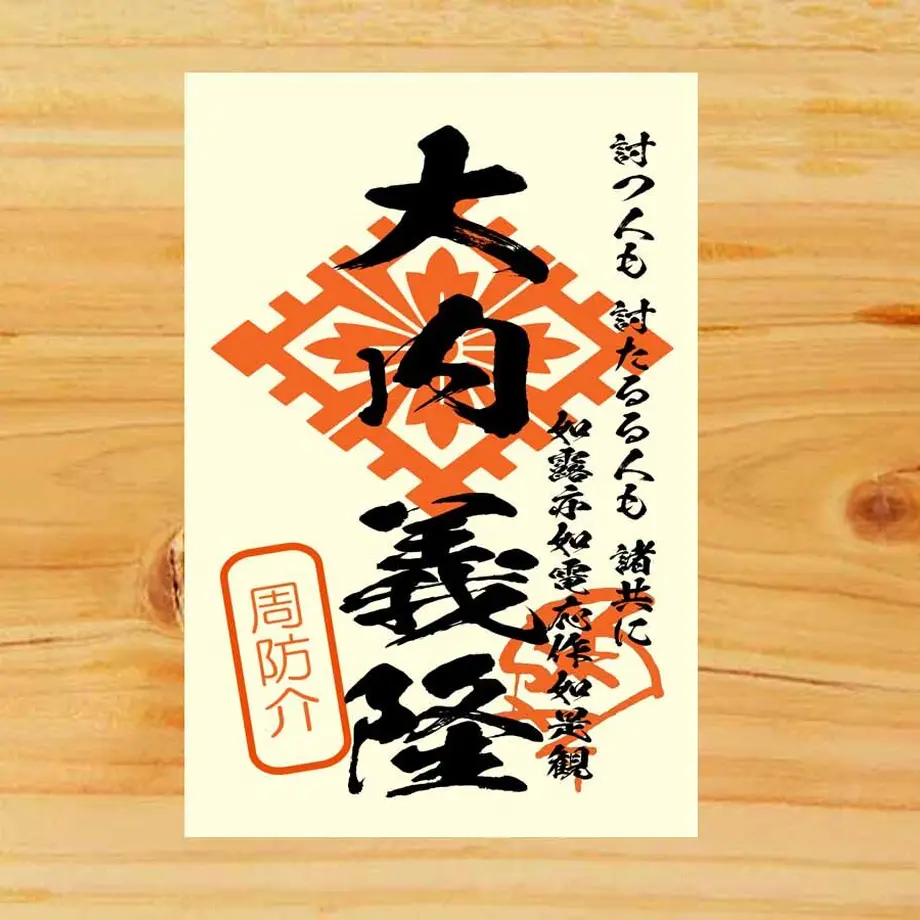 討つ人も 討たるる人も 諸共に
如露亦如電応作如是観
大内義隆
周防介